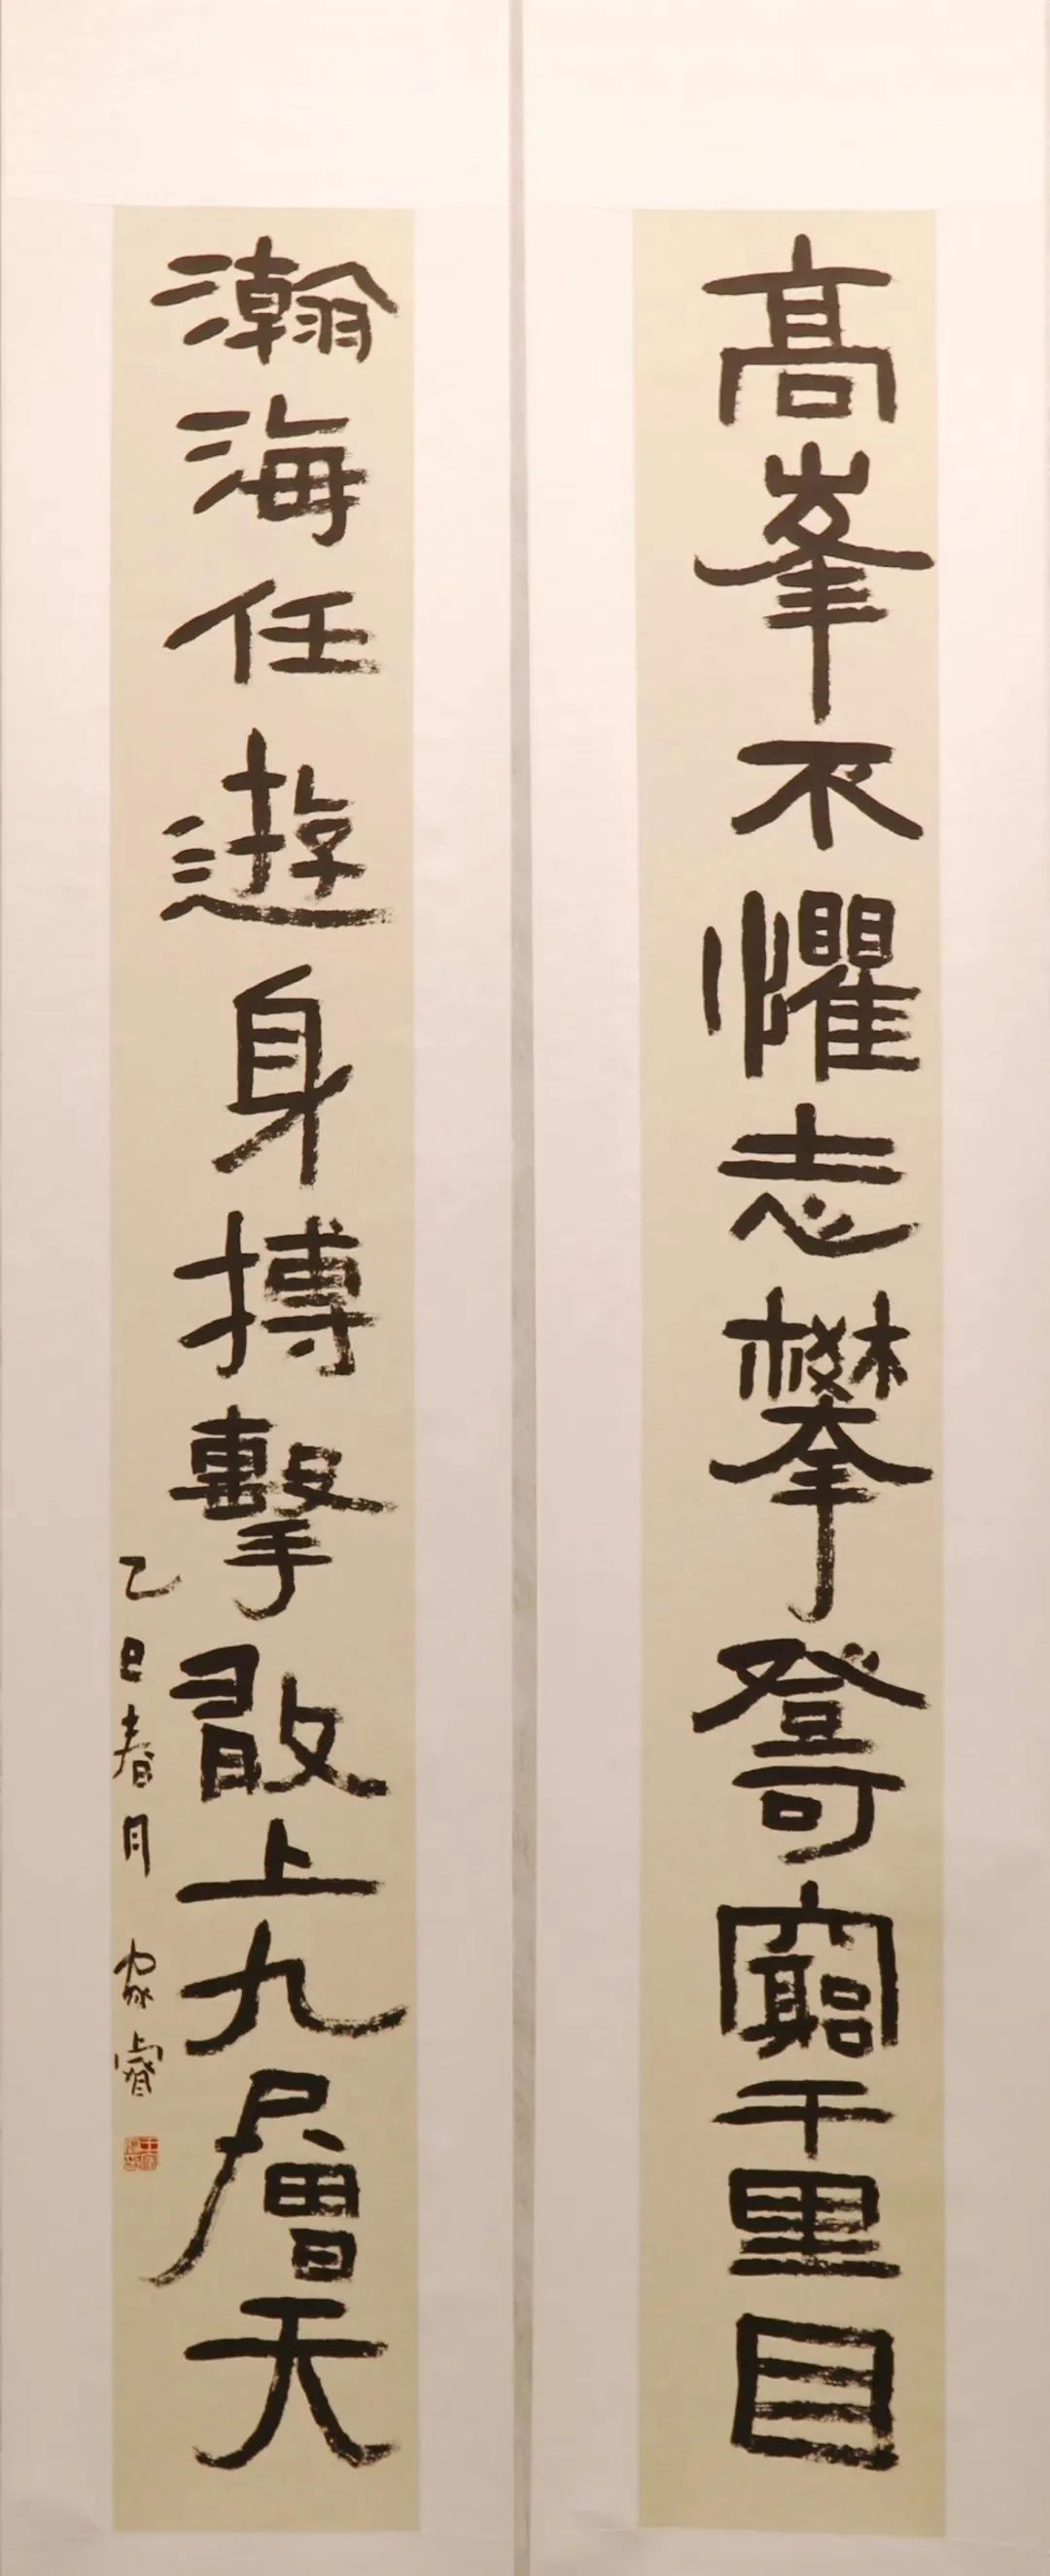 高峯不懼志攀登可窮千里目
瀚海任遊身搏擊敢上九層天
乙巳春月 家睿